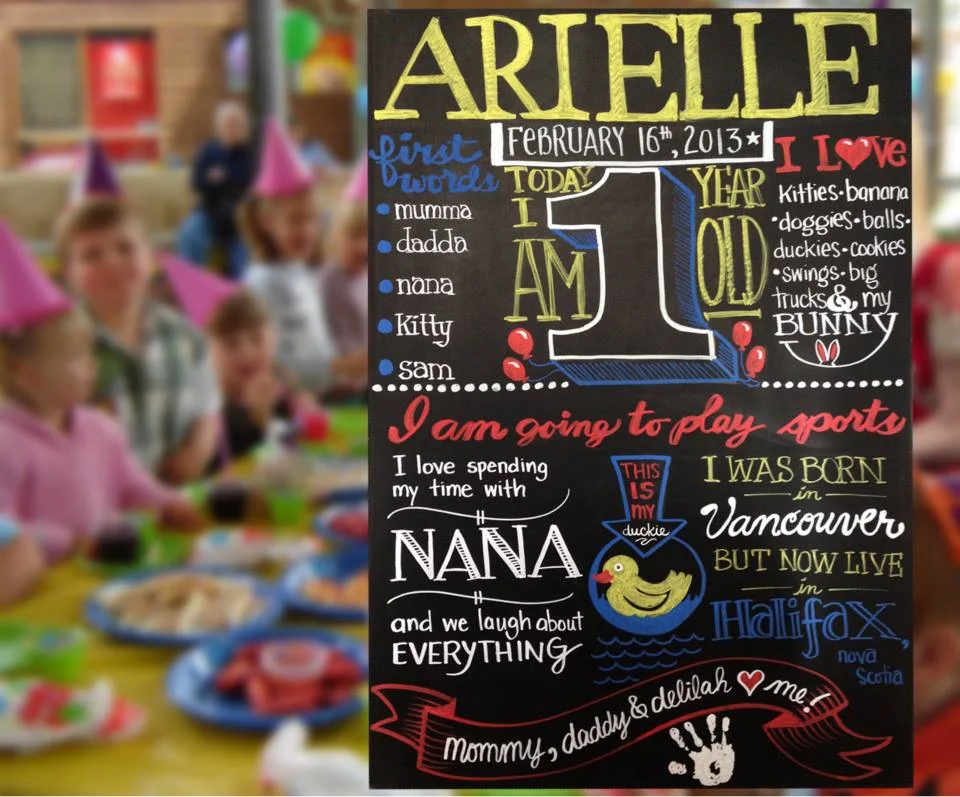 ARIELLE
FEBRUARY 16th, 2013★
first
words
• mumma
• dadda
• nana
• Kitty
• sam
TODAY
I
AM
1
YEAR
OLD
I LOVE
Kitties•banana
•doggies•balls•
duckies•cookies
•swings•big
trucks & my
BUNNY
I am going to play sports
I love spending
my time with
NANA
and we laugh about
EVERYTHING
THIS
IS
my
duckie
I WAS BORN
in
Vancouver
BUT NOW LIVE
in
Halifax,
nova
Scotia
mommy, daddy & delilah ♥ me!